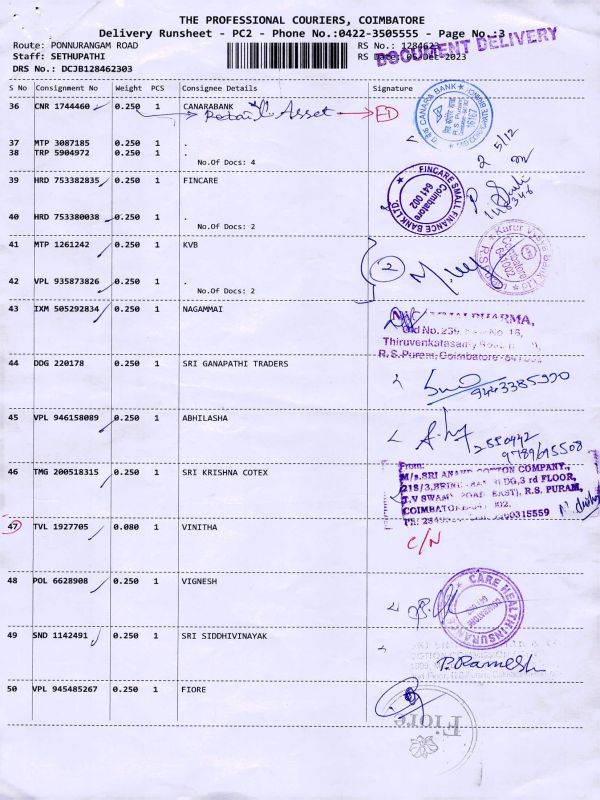 THE PROFESSIONAL COURIERS, COIMBATORE
Delivery Runsheet - PC2 - Phone No.:0422-3505555 - Page No.:3
Route: PONNURANGAM ROAD RS No.: 1284623
Staff: SETHUPATHI RS Date: 05/Dec-2023
DRS No.: DCJB128462303
DOCUMENT DELIVERY
S No Consignment No Weight PCS Consignee Details Signature
36 CNR 1744460 0.250 1 CANARABANK
Retail Asset
CANARA BANK
37 MTP 3087185 0.250 1 .
38 TRP 5904972 0.250 1 .
No.Of Docs: 4
2 5/12
39 HRD 753382835 0.250 1 FINCARE
FINCARE SMALL FINANCE BANK LTD.
Coimbatore
641 002
40 HRD 753380038 0.250 1 .
No.Of Docs: 2
41 MTP 1261242 0.250 1 KVB
2
Coimbatore
641002
42 VPL 935873826 0.250 1 .
No.Of Docs: 2
43 IXM 505292834 0.250 1 NAGAMMAI
Old No.239, No. 16,
Thiruvenkatasamy
R.S. Puram, Coimbatore - 641002
44 DDG 220178 0.250 1 SRI GANAPATHI TRADERS
9443385920
45 VPL 946158089 0.250 1 ABHILASHA
2550442
9789695508
46 TMG 200518315 0.250 1 SRI KRISHNA COTEX
From:
M/s.SRI ANAND COTTON COMPANY.,
218/3, BLDG, 3 rd FLOOR,
T.V SWAMY ROAD EAST), R.S. PURAM,
COIMBATORE
47 TVL 1927705 0.080 1 VINITHA
C/N
48 POL 6628908 0.250 1 VIGNESH
CARE HEALTH INSURANCE
49 SND 1142491 0.250 1 SRI SIDDHIVINAYAK
P. Ramesh
50 VPL 945485267 0.250 1 FIORE
Fiore